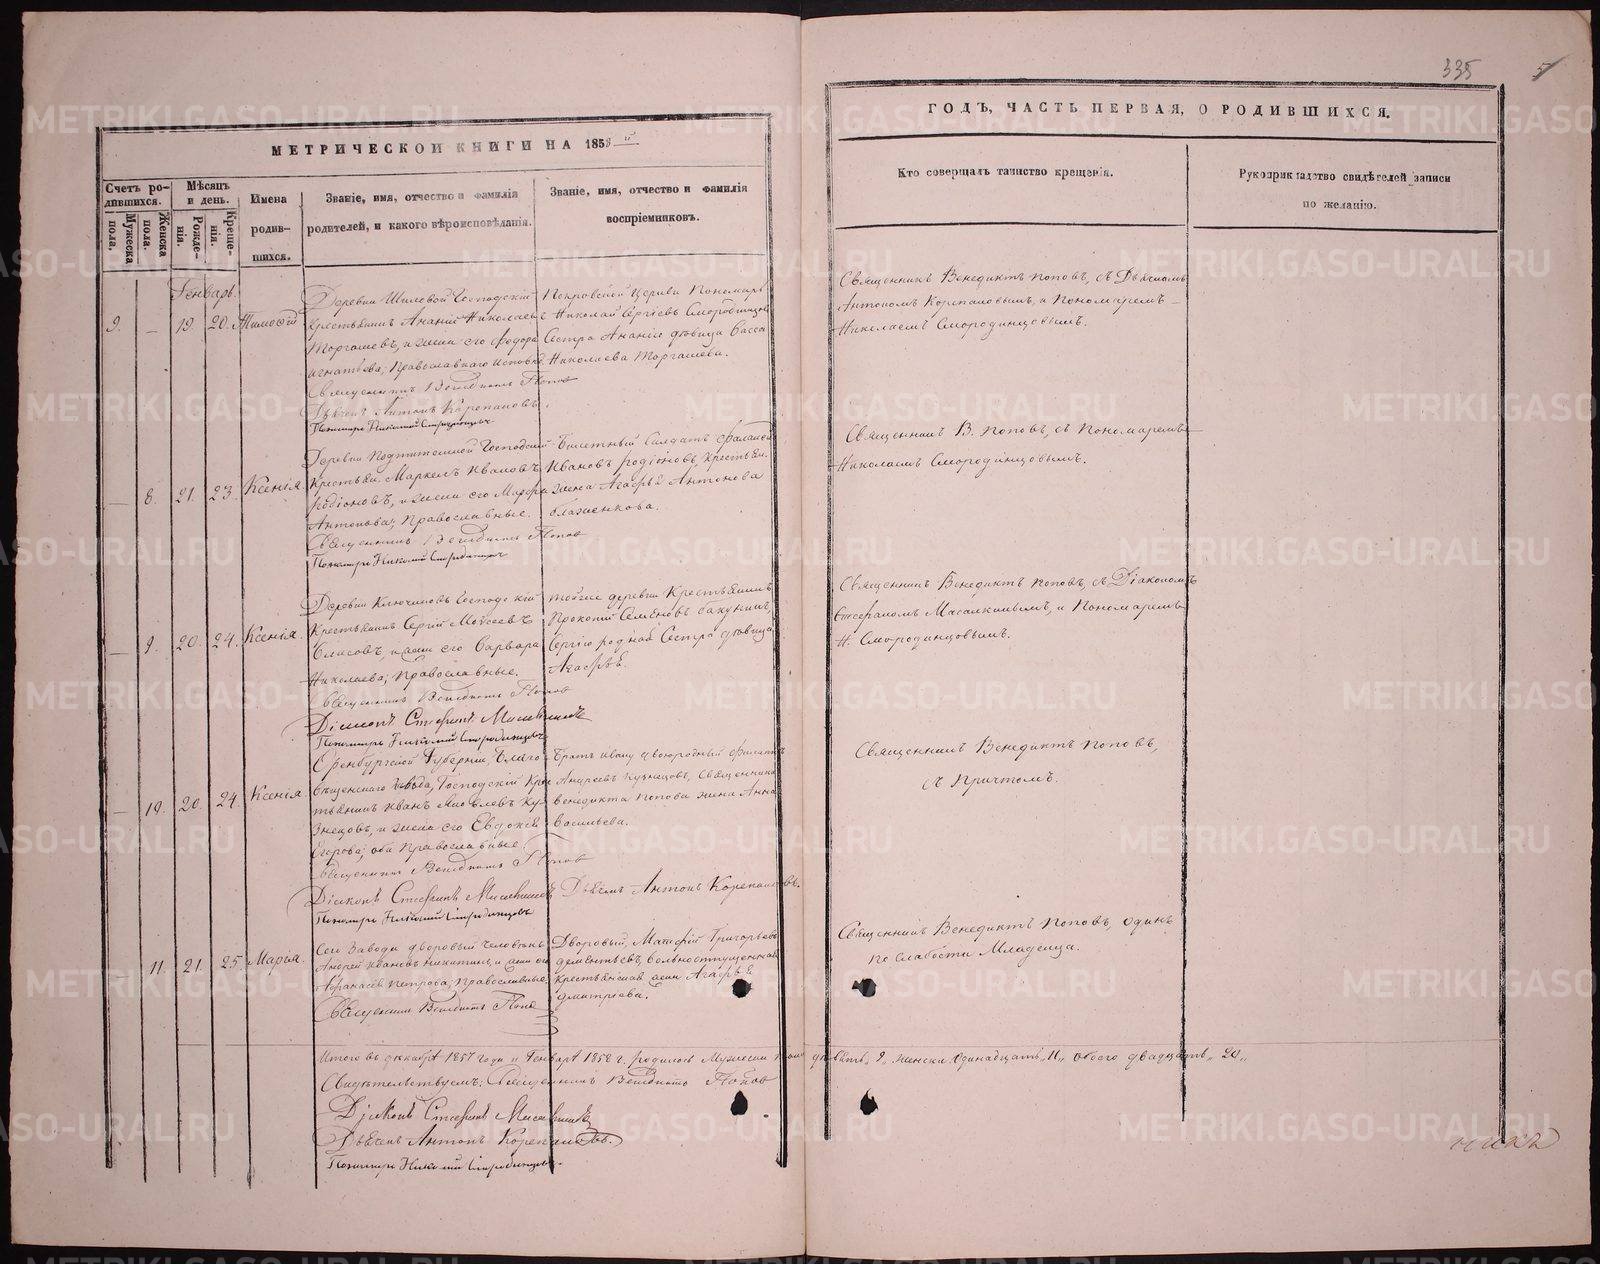 335
5
МЕТРИЧЕСКОЙ КНИГИ НА 1858 й
ГОДЪ, ЧАСТЬ ПЕРВАЯ, О РОДИВШИХСЯ.
Счетъ родившихся.
Мѣсяцъ и день.
Имена родившихся.
Званіе, имя, отчество и фамилія родителей, и какого вѣроисповѣданія.
Званіе, имя, отчество и фамилія воспріемниковъ.
Кто совершалъ таинство крещенія.
Рукоприкладство свидѣтелей записи по желанію.
Мужеска пола.
Женска пола.
Рожденія.
Крещенія.
Генварь.
9. — 19. 20. Тимофей
Деревни Шилевой Господскій
крестьянинъ Ананій Николаевъ
Торгашевъ, и жена его Федора
Игнатьева, Православнаго исповѣд.
Священникъ Венедиктъ Попов
Дьячекъ Антонъ Корепановъ.
Пономарь Николай Смородинцовъ
Покровской Церкви Пономарь
Николай Сергіевъ Смородинцовъ
Сестра Ананія дѣвица Васса
Николаева Торгашева.
Священникъ Венедиктъ Поповъ, съ Дьячкомъ
Антономъ Корепановымъ, и Пономаремъ
Николаемъ Смородинцовымъ.
— 8. 21. 23. Ксенія
Деревни Господскій
Крестьян. Маркелъ Ивановъ
Родіоновъ, и жена его Марфа
Антонова; Православные.
Священникъ Венедиктъ Попов
Пономарь Николай Смородинцовъ
Билетный Солдатъ
Ивановъ Родіоновъ, Крестьян.
жена Агафья Антонова
Блаженкова.
Священникъ В. Поповъ, съ Пономаремъ
Николаемъ Смородинцовымъ.
— 9. 20. 24. Ксенія.
Деревни Ключиковъ Господскій
Крестьянинъ Сергій Моисеевъ
Власовъ, и жена его Варвара
Николаева; Православные.
Священникъ Венедиктъ Попов
Діаконъ Стефанъ Масалкинъ
Пономарь Николай Смородинцовъ
тойже деревни Крестьянинъ
Прокопій Семеновъ Бакунинъ,
Сергію родная Сестра дѣвица
Агафья.
Священникъ Венедиктъ Поповъ, съ Діакономъ
Стефаномъ Масалкинымъ, и Пономаремъ
Н. Смородинцовымъ.
— 10. 20. 24. Ксенія
Оренбургской Губерніи, Благо
вѣщенскаго завода, Господскій Кре
стьянинъ Иванъ Ку
знецовъ, и жена его Евдокія
Егорова; оба Православные.
Священникъ Венедиктъ Попов
Діаконъ Стефанъ Масалкинъ
Дьячекъ Антонъ Корепановъ.
Пономарь Николай Смородинцовъ
Братъ Ивану двоюродный
Андреевъ Кузнецовъ, Священника
Венедикта Попова жена Анна
Васильева.
Священникъ Венедиктъ Поповъ,
съ Причтомъ.
— 11. 21. 25. Марья.
Сего Завода дворовый человѣкъ
Андрей Ивановъ Никитинъ, и жена его
Афанасья Петрова; Православные.
Священникъ Венедиктъ Попов
Дворовый, Матфей Григорьевъ
Дементьевъ, вольноотпущенная
крестьянская жена Агафья
Дмитріева.
Священникъ Венедиктъ Поповъ, одинъ
по слабости Младенца.
Итого въ декабрѣ 1857 года и Генварѣ 1858 г. родилось Мужеска пола девять „ 9 „ женска одинадцать „ 11 „ обоего двадцать „ 20 „
Свидѣтельствуемъ: Священникъ Венедиктъ Попов
Діаконъ Стефанъ Масалкинъ
Дьячекъ Антонъ Корепановъ.
Пономарь Николай Смородинцовъ.
METRIKI.GASO-URAL.RU